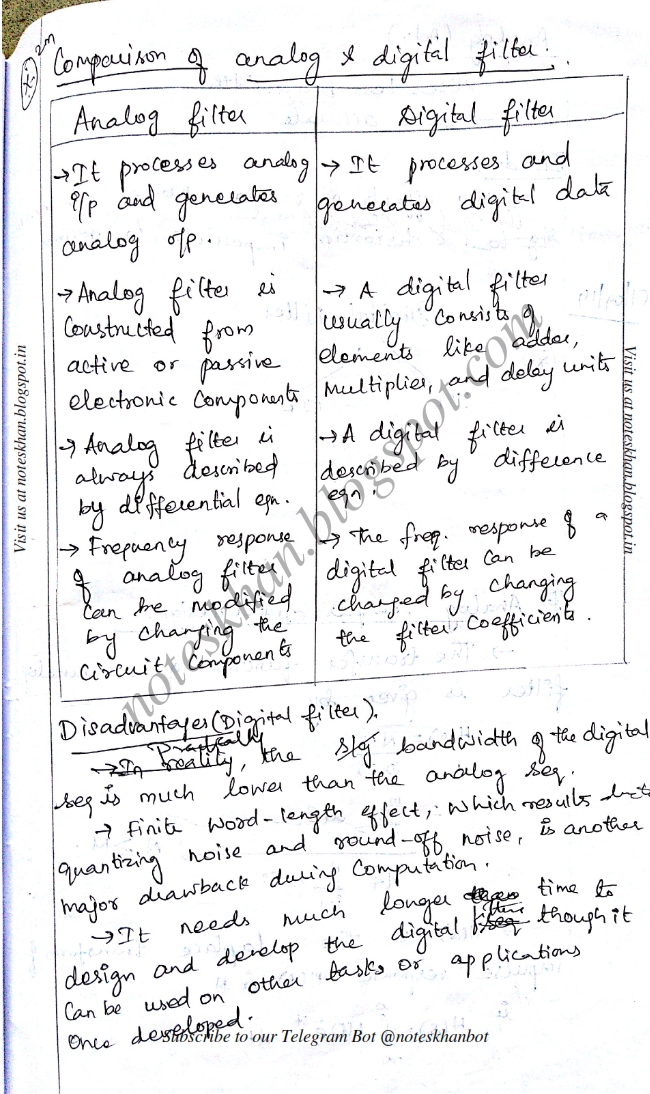 2m
Comparison of analog & digital filter.
Analog filter
→ It processes analog
i/p and generates
analog o/p.
→ Analog filter is
Constructed from
active or passive
electronic Components
→ Analog filter is
always described
by differential eqn.
→ Frequency response
of analog filter
can be modified
by changing the
Circuit Components
Digital filter
→ It processes and
generates digital data
→ A digital filter
usually consists of
elements like adder,
Multiplier, and delay units
→ A digital filter is
described by difference
eqn.
→ The freq. response of a
digital filter can be
changed by changing
the filter coefficients.
Disadvantages (Digital filter).
→ In reality, Practically the bandwidth of the digital
seq is much lower than the analog seq.
→ Finite word-length effect, which results
quantizing noise and round-off noise, is another
major drawback during Computation.
→ It needs much longer time to
design and develop the digital filter though it
Can be used on other tasks or applications
Once developed.
Subscribe to our Telegram Bot @noteskhanbot
Visit us at noteskhan.blogspot.in
Visit us at noteskhan.blogspot.in
noteskhan.blogspot.com